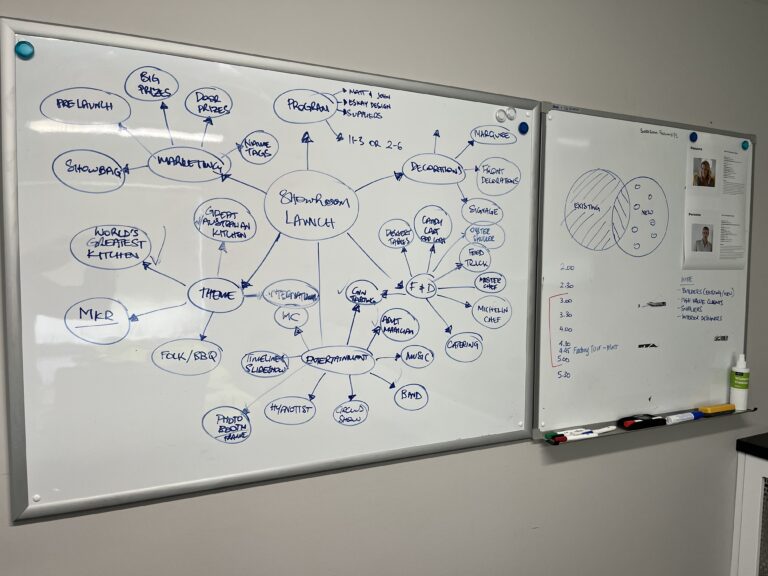 BIG
PRIZES
PRE LAUNCH
DOOR
PRIZES
NAME
TAGS
SHOWBAG
MARKETING
PROGRAM
MATT & JOHN
DESIGN
SUPPLIERS
11-3 OR 2-6
DECORATIONS
MARQUEE
FRONT
DECORATIONS
SIGNAGE
SHOWROOM
LAUNCH
GREAT
AUSTRALIAN
KITCHEN
WORLD'S
GREATEST
KITCHEN
THEME
MKR
FOLK/BBQ
INTERNATIONAL
DESSERT
TABLES
CANDY
CART
OYSTER
SHUCKER
FOOD
TRUCK
MASTER
CHEF
F & D
GIN
TASTING
MICHELIN
CHEF
CATERING
MC
ADULT
MAGICIAN
TIMELINE
SLIDESHOW
ENTERTAINMENT
MUSIC
BAND
PHOTO
BOOTH
FRAME
HYPNOTIST
CIRCUS
SHOW
EXISTING
NEW
2.00
2.30
3.00
3.30
4.00
4.30
4.45 Factory Tour - Matt
5.00
5.30
- SUPPLIERS
- INTERIOR DESIGNERS